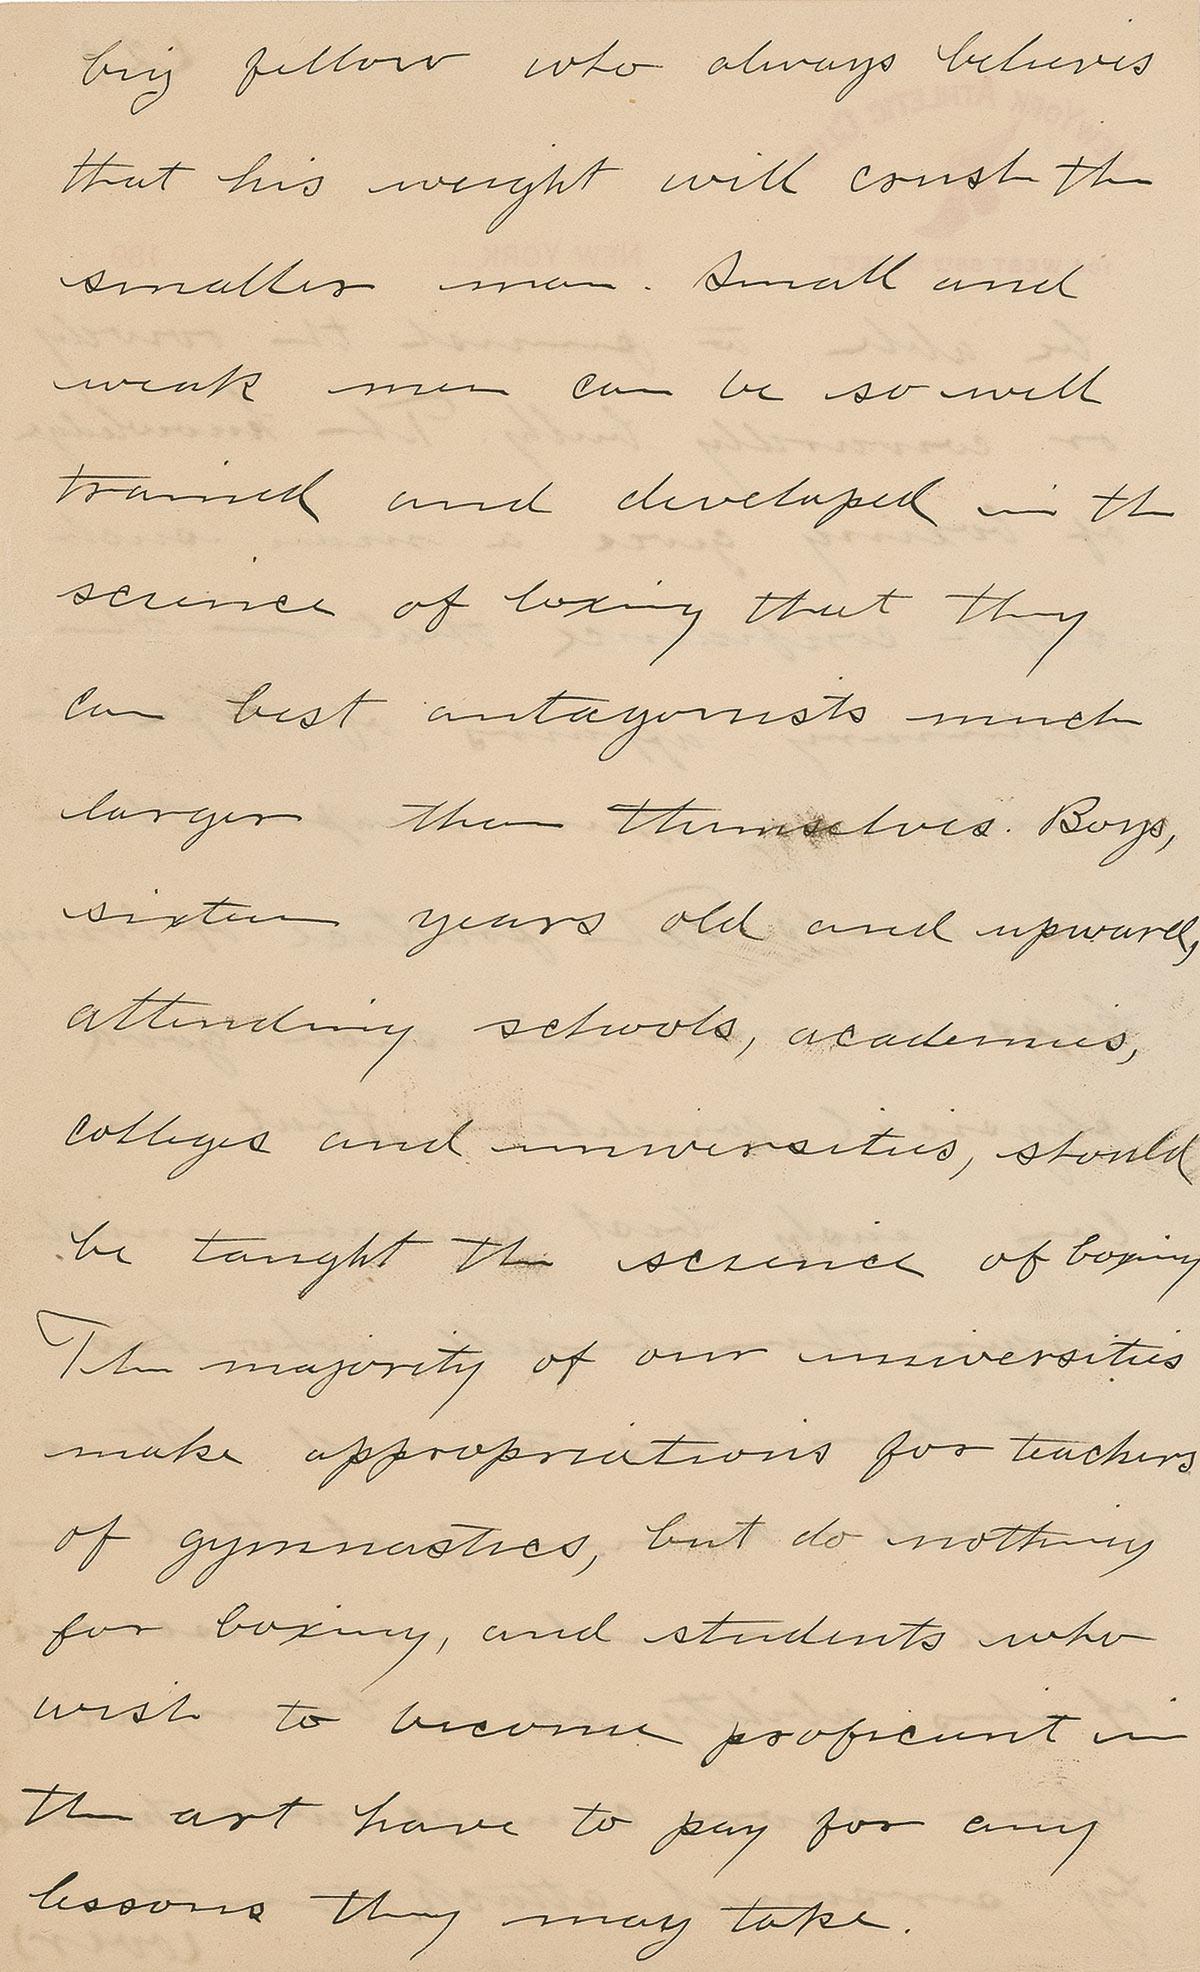 big fellow who always believes
that his weight will crush the
smaller man. Small and
weak men can be so well
trained and developed in the
science of boxing that they
can best antagonists much
larger than themselves. Boys,
sixteen years old and upward,
attending schools, academies,
colleges and universities, should
be taught the science of boxing
The majority of our universities
make appropriations for teachers
of gymnastics, but do nothing
for boxing, and students who
wish to become proficient in
the art have to pay for any
lessons they may take.